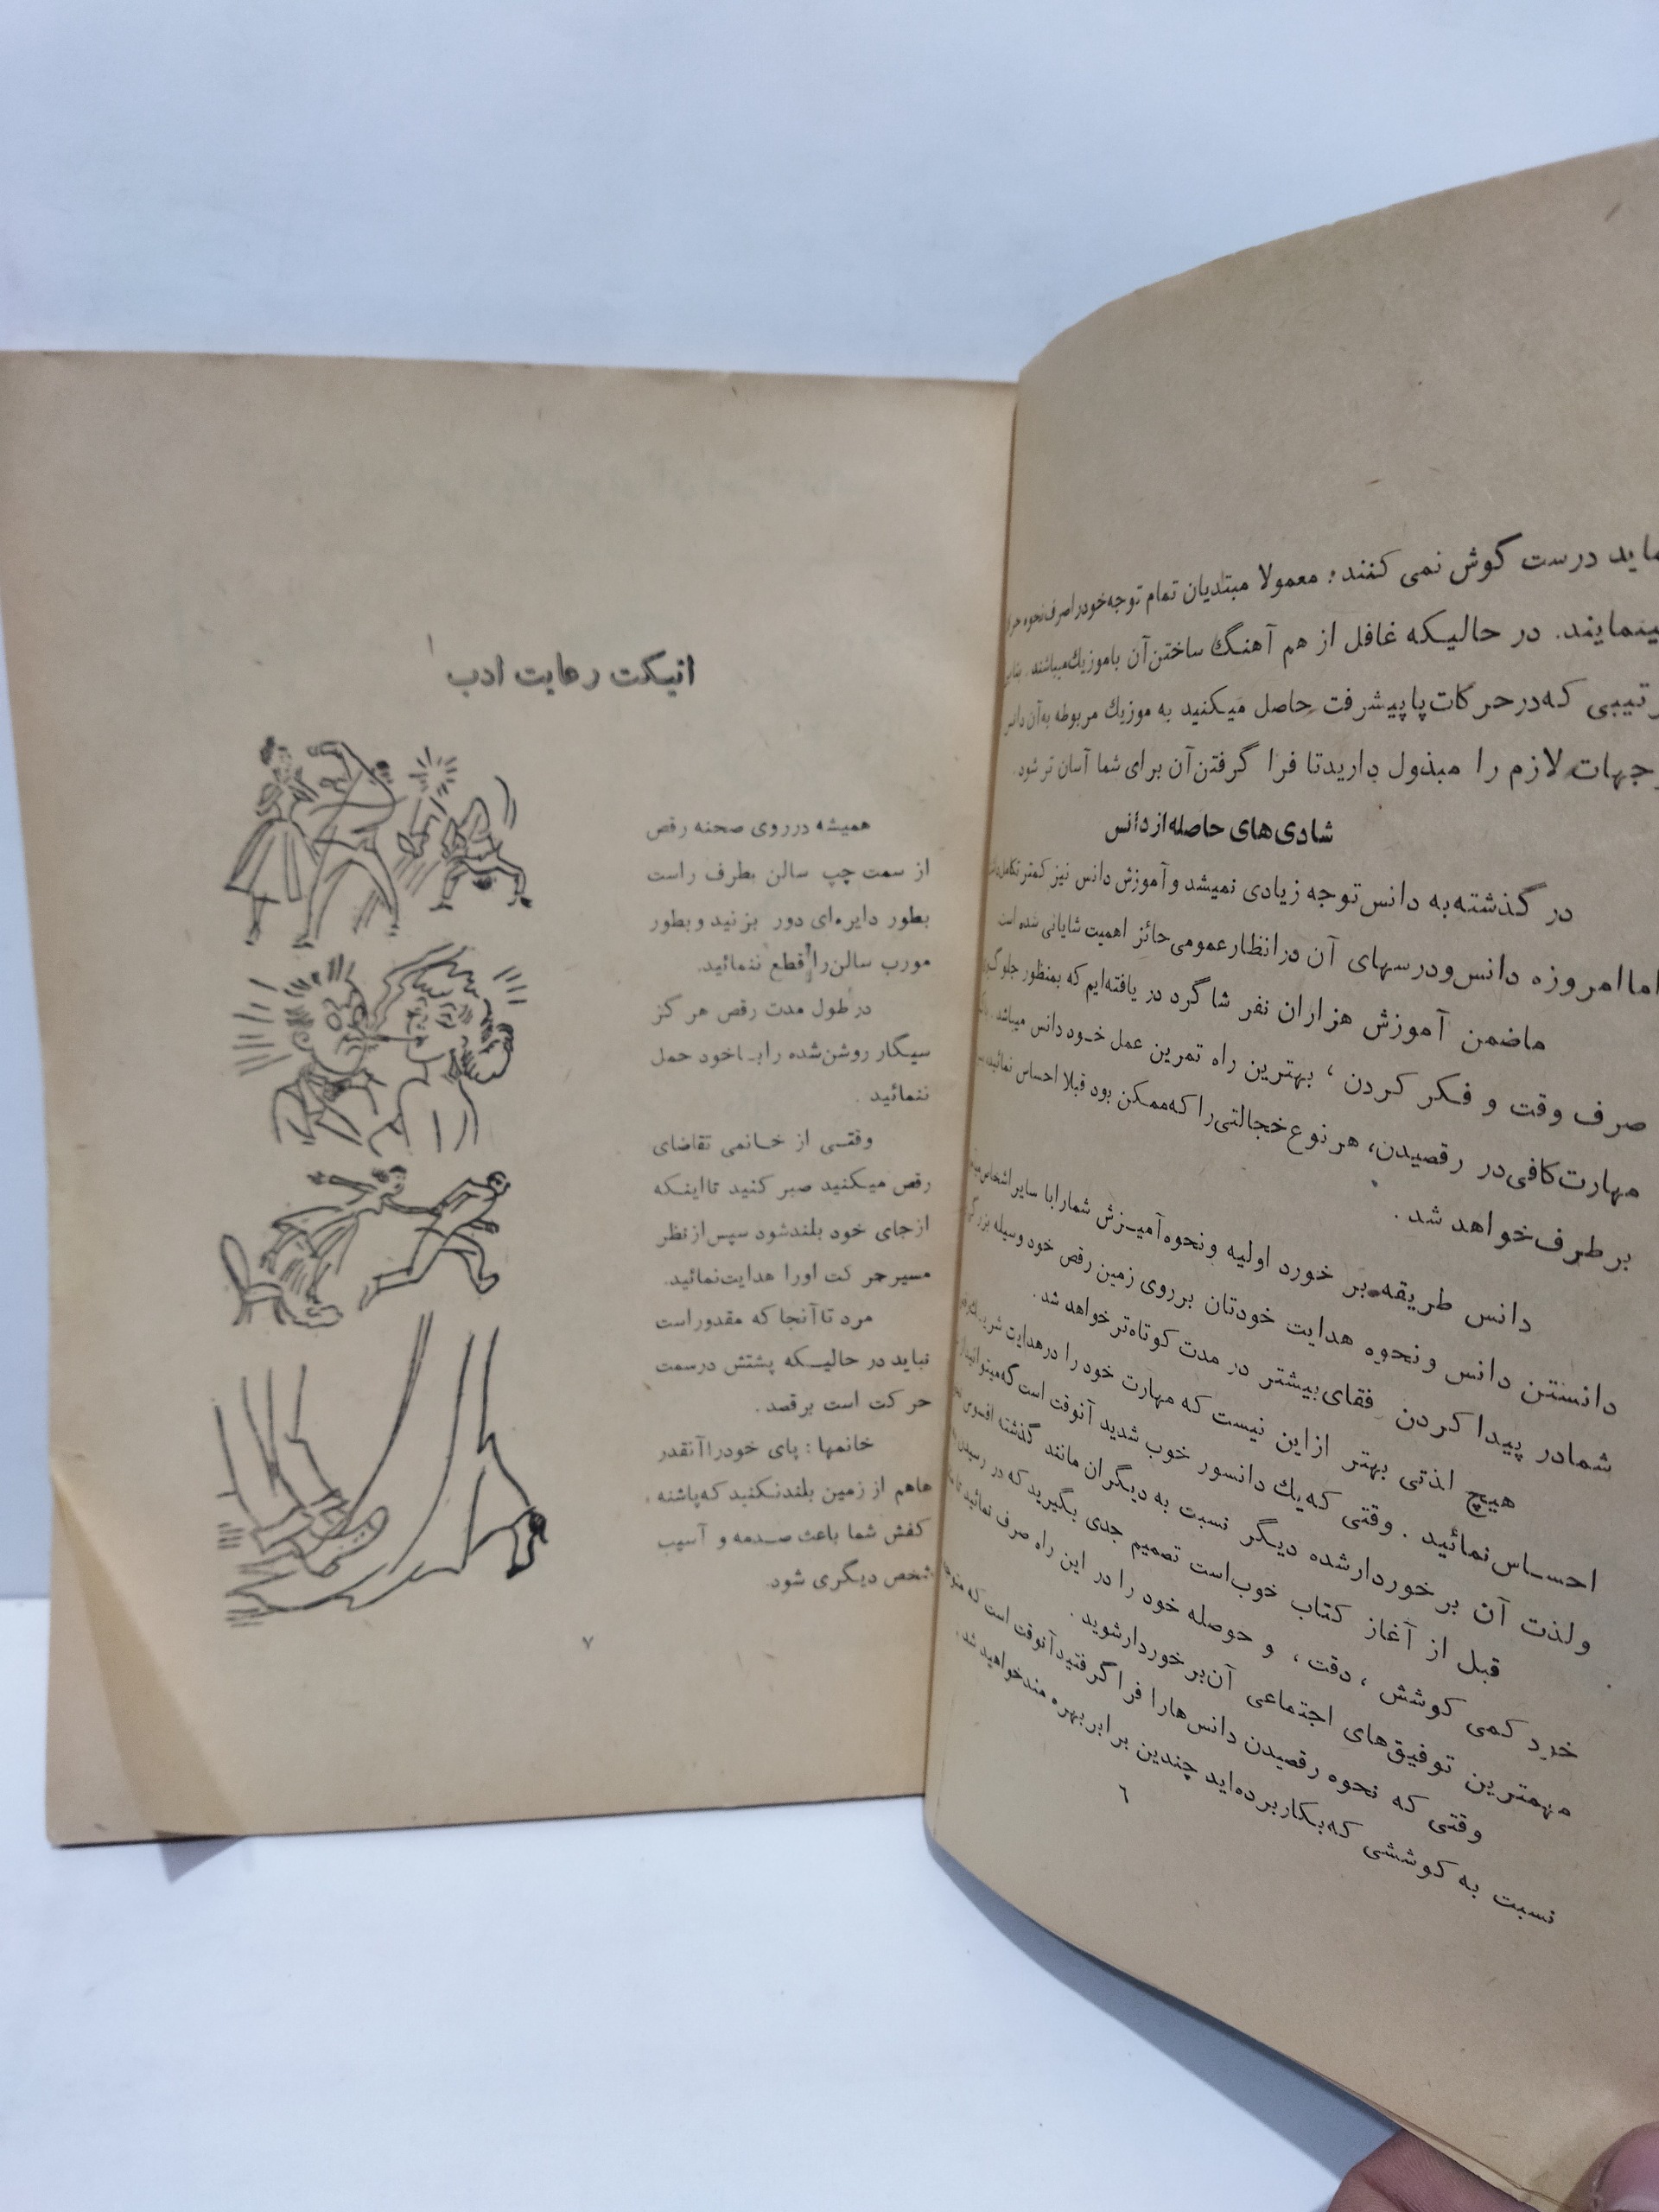 درست گوش نمی کنند؛ معمولا مبتدیان تمام توجه خود را صرف نحوه
در حالیکه غافل از هم آهنگ ساختن آن با موزیك میباشند.
که در حرکات پا پیشرفت حاصل میکنید به موزیك مربوطه به آن دانس
لازم را مبذول دارید تا فرا گرفتن آن برای شما آسان تر شود.
شادی های حاصله از دانس
در گذشته به دانس توجه زیادی نمیشد و آموزش دانس نیز کمتر تکامل
اما امروزه دانس و درسهای آن در انظار عمومی حائز اهمیت شایانی شده است
ما ضمن آموزش هزاران نفر شاگرد در یافته ایم که بمنظور
صرف وقت و فکر کردن ، بهترین راه تمرین عمل خود دانس میباشد
مهارت کافی در رقصیدن، هر نوع خجالتی را که ممکن بود قبلا احساس نمائید
بر طرف خواهد شد .
دانس طریقه بر خورد اولیه و نحوه آمیزش شمارا با سایر اشخاص
دانستن دانس و نحوه هدایت خودتان بر روی زمین رقص خود وسیله
شما در پیدا کردن رفقای بیشتر در مدت کوتاه تر خواهد شد .
هیچ لذتی بهتر از این نیست که مهارت خود را در هدایت
احساس نمائید . وقتی که یك دانسور خوب شدید آنوقت است که میتوانید
ولذت آن بر خوردار شده دیگر نسبت به دیگران مانند گذشته افسوس
قبل از آغاز کتاب خوب است تصمیم جدی بگیرید که در
خرد کمی کوشش ، دقت ، و حوصله خود را در این راه صرف نمائید تا
مهمترین توفیق های اجتماعی آن بر خوردار شوید .
وقتی که نحوه رقصیدن دانس هارا فرا گرفتید آنوقت است که
نسبت به کوششی که بکار برده اید چندین برابر بهره مند خواهید شد .
٦
اتیکت رعایت ادب
همیشه در روی صحنه رقص
از سمت چپ سالن بطرف راست
بطور دایره ای دور بزنید و بطور
مورب سالن را قطع ننمائید.
در طول مدت رقص هر گز
سیگار روشن شده را با خود حمل
ننمائید .
وقتی از خانمی تقاضای
رقص میکنید صبر کنید تا اینکه
از جای خود بلند شود سپس از نظر
مسیر حر کت اورا هدایت نمائید.
مرد تا آنجا که مقدور است
نباید در حالیکه پشتش در سمت
حر کت است برقصد .
خانمها : پای خود را آنقدر
هاهم از زمین بلند نکنید که پاشنه
کفش شما باعث صدمه و آسیب
شخص دیگری شود.
۷